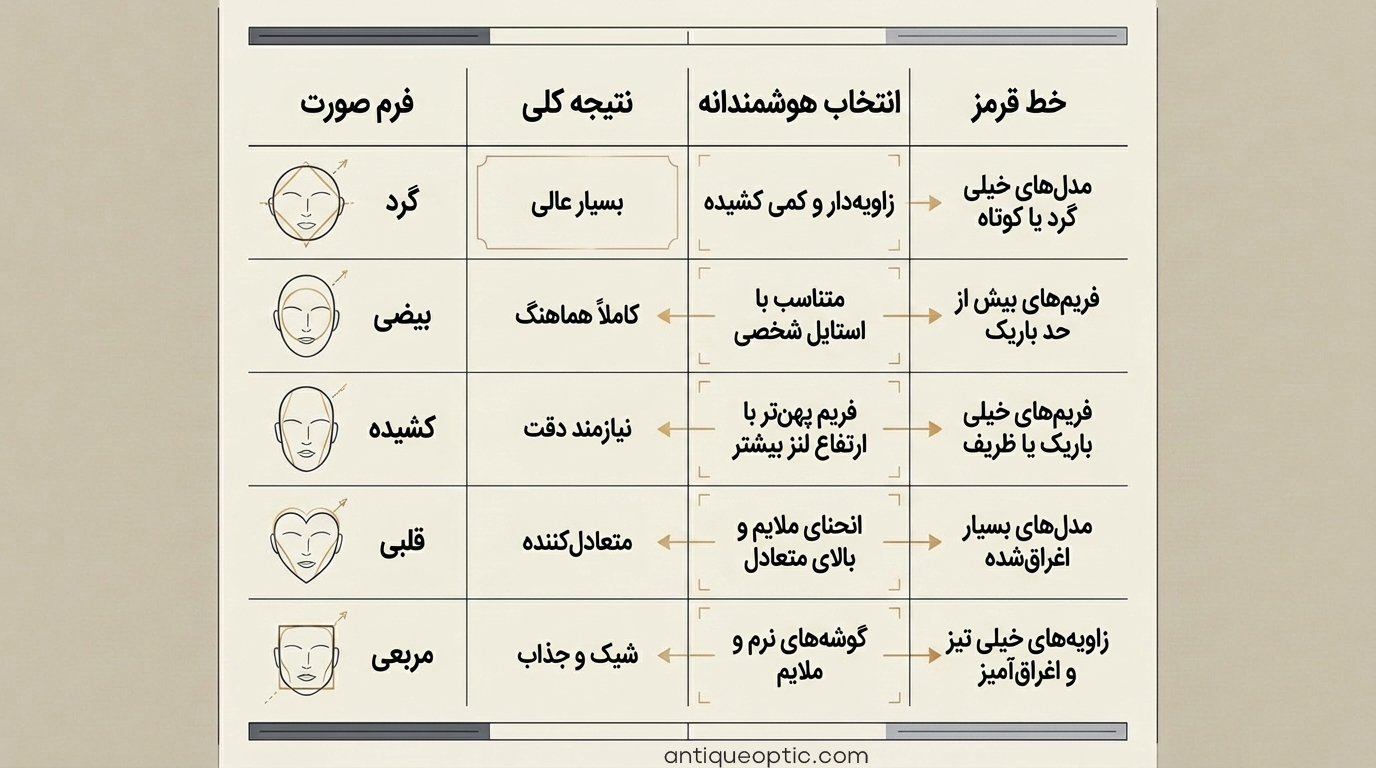 خط قرمز
انتخاب هوشمندانه
نتیجه کلی
فرم صورت
مدل‌های خیلی
گرد یا کوتاه
زاویه‌دار و کمی کشیده
بسیار عالی
گرد
فریم‌های بیش از
حد باریک
متناسب با
استایل شخصی
کاملاً هماهنگ
بیضی
فریم‌های خیلی
باریک یا ظریف
فریم پهن‌تر با
ارتفاع لنز بیشتر
نیازمند دقت
کشیده
مدل‌های بسیار
اغراق‌شده
انحنای ملایم و
بالای متعادل
متعادل‌کننده
قلبی
زاویه‌های خیلی تیز
و اغراق‌آمیز
گوشه‌های نرم و
ملایم
شیک و جذاب
مربعی
antiqueoptic.com